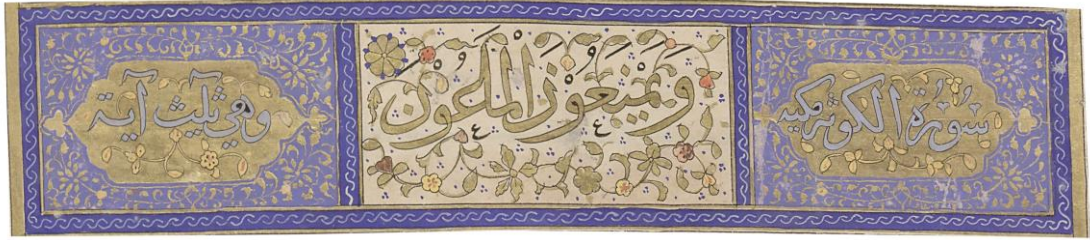 سورة الكوثر مكية
ويمنعون الماعون
وهي ثلث آية